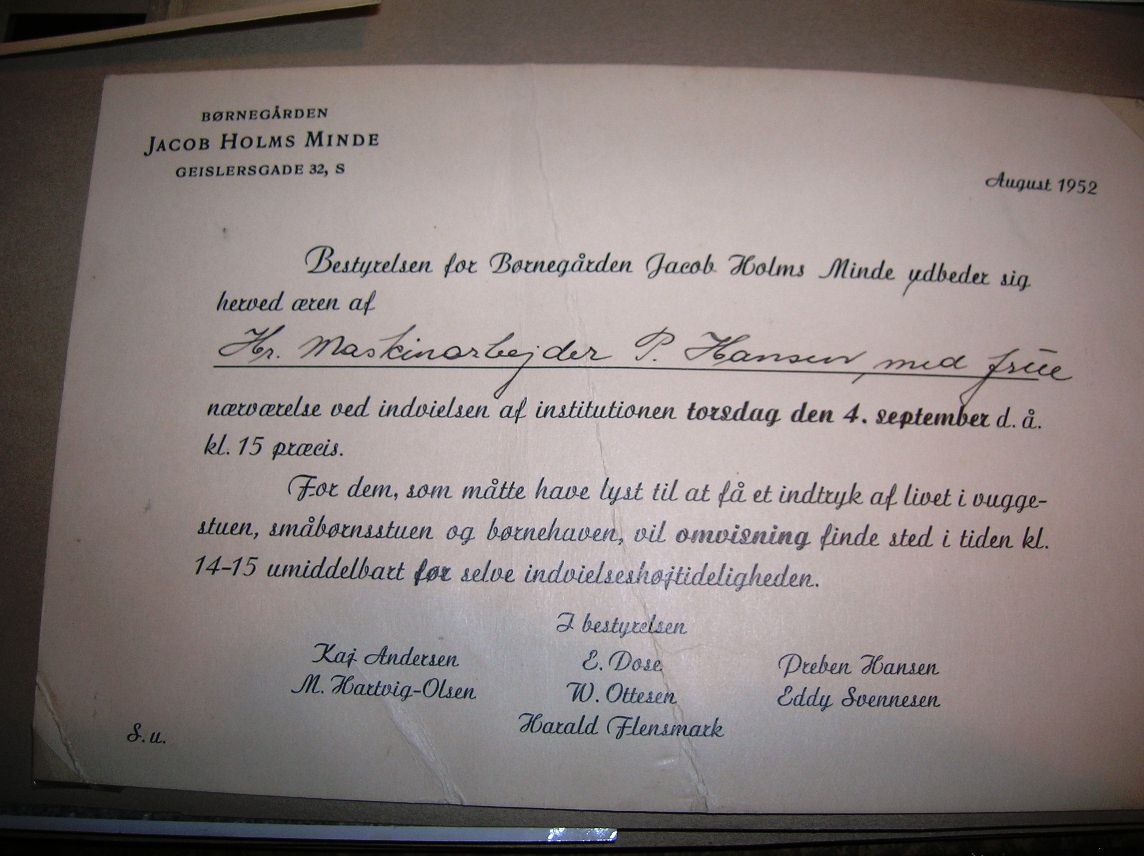 BØRNEGÅRDEN
JACOB HOLMS MINDE
GEISLERSGADE 32, S
August 1952
Bestyrelsen for Børnegården Jacob Holms Minde udbeder sig
herved æren af
Hr. Maskinarbejder P. Hansen, med frue
nærværelse ved indvielsen af institutionen torsdag den 4. september d. å.
kl. 15 præcis.
For dem, som måtte have lyst til at få et indtryk af livet i vugge-
stuen, småbørnsstuen og børnehaven, vil omvisning finde sted i tiden kl.
14-15 umiddelbart før selve indvielseshøjtideligheden.
I bestyrelsen
Kaj Andersen E. Dose Preben Hansen
M. Hartvig-Olsen W. Ottesen Eddy Svennesen
Harald Flensmark
S. u.